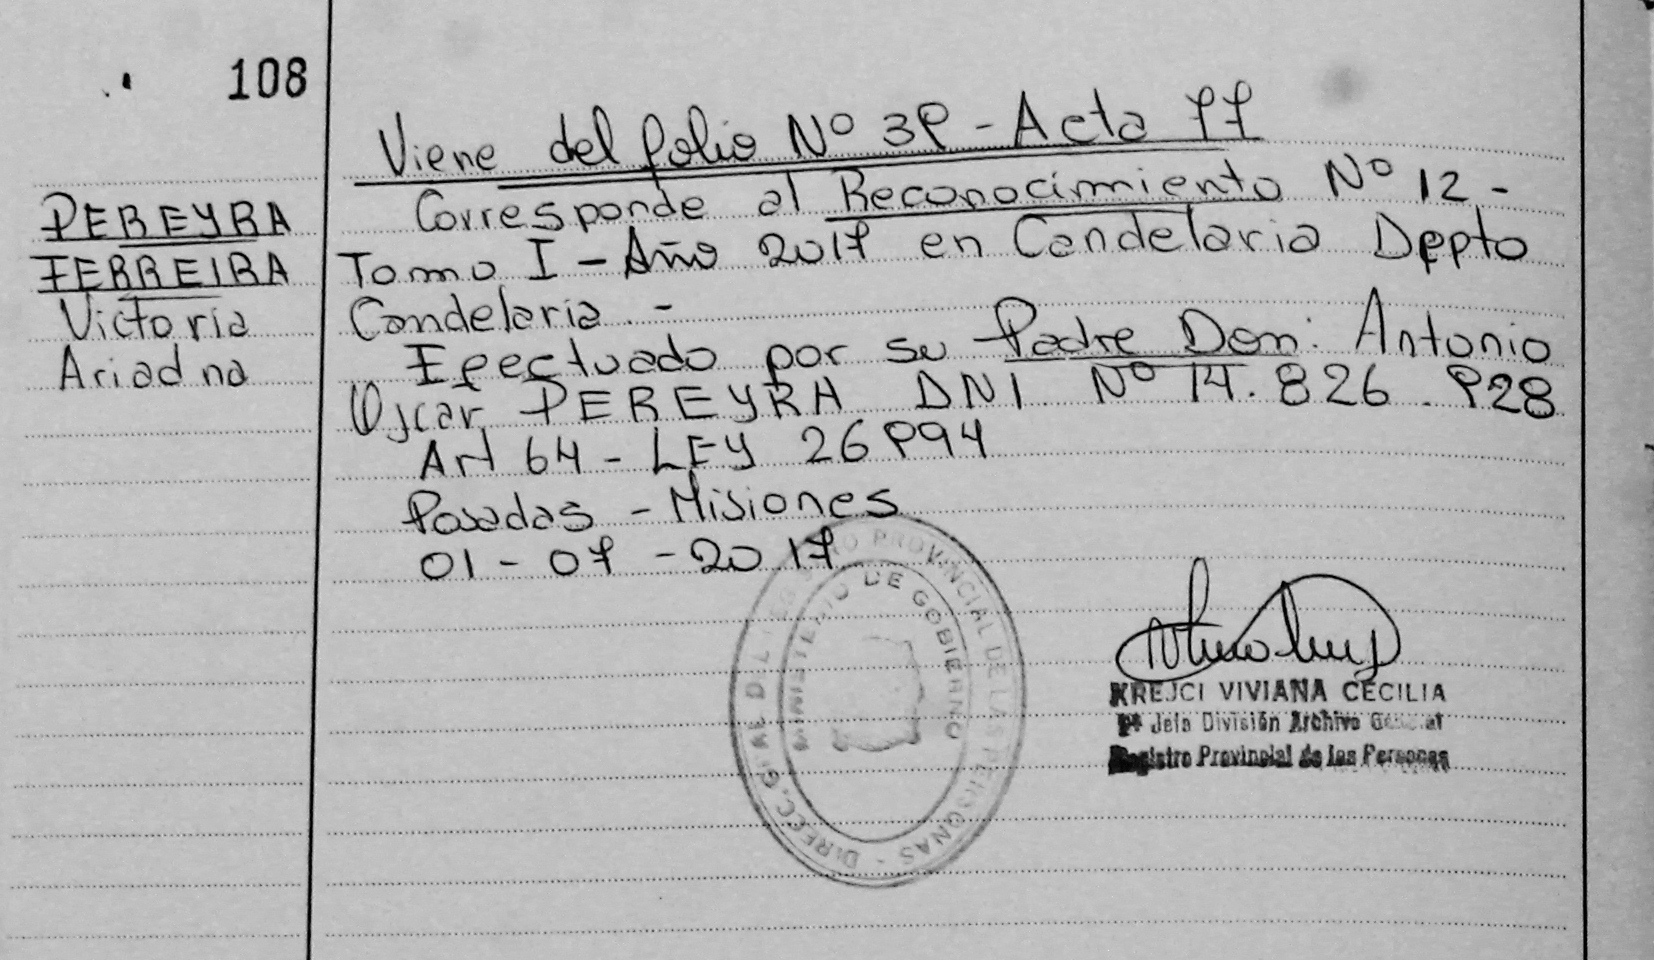 108
Viene del folio Nº 39 - Acta 77
PEREYRA
FERREIRA
Victoria
Ariadna
Corresponde al Reconocimiento Nº 12 -
Tomo I - Año 2017 en Candelaria Dppto
Candelaria. -
Efectuado por su Padre Don: Antonio
Oscar PEREYRA DNI Nº 14.826.928
Art 64 - LEY 26994
Posadas - Misiones
01 - 07 - 2017
DIRECC. GRAL DEL REGISTRO PROVINCIAL DE LAS PERSONAS -
MINISTERIO DE GOBIERNO
KREJCI VIVIANA CECILIA
Jefa División Archivo General
Registro Provincial de las Personas